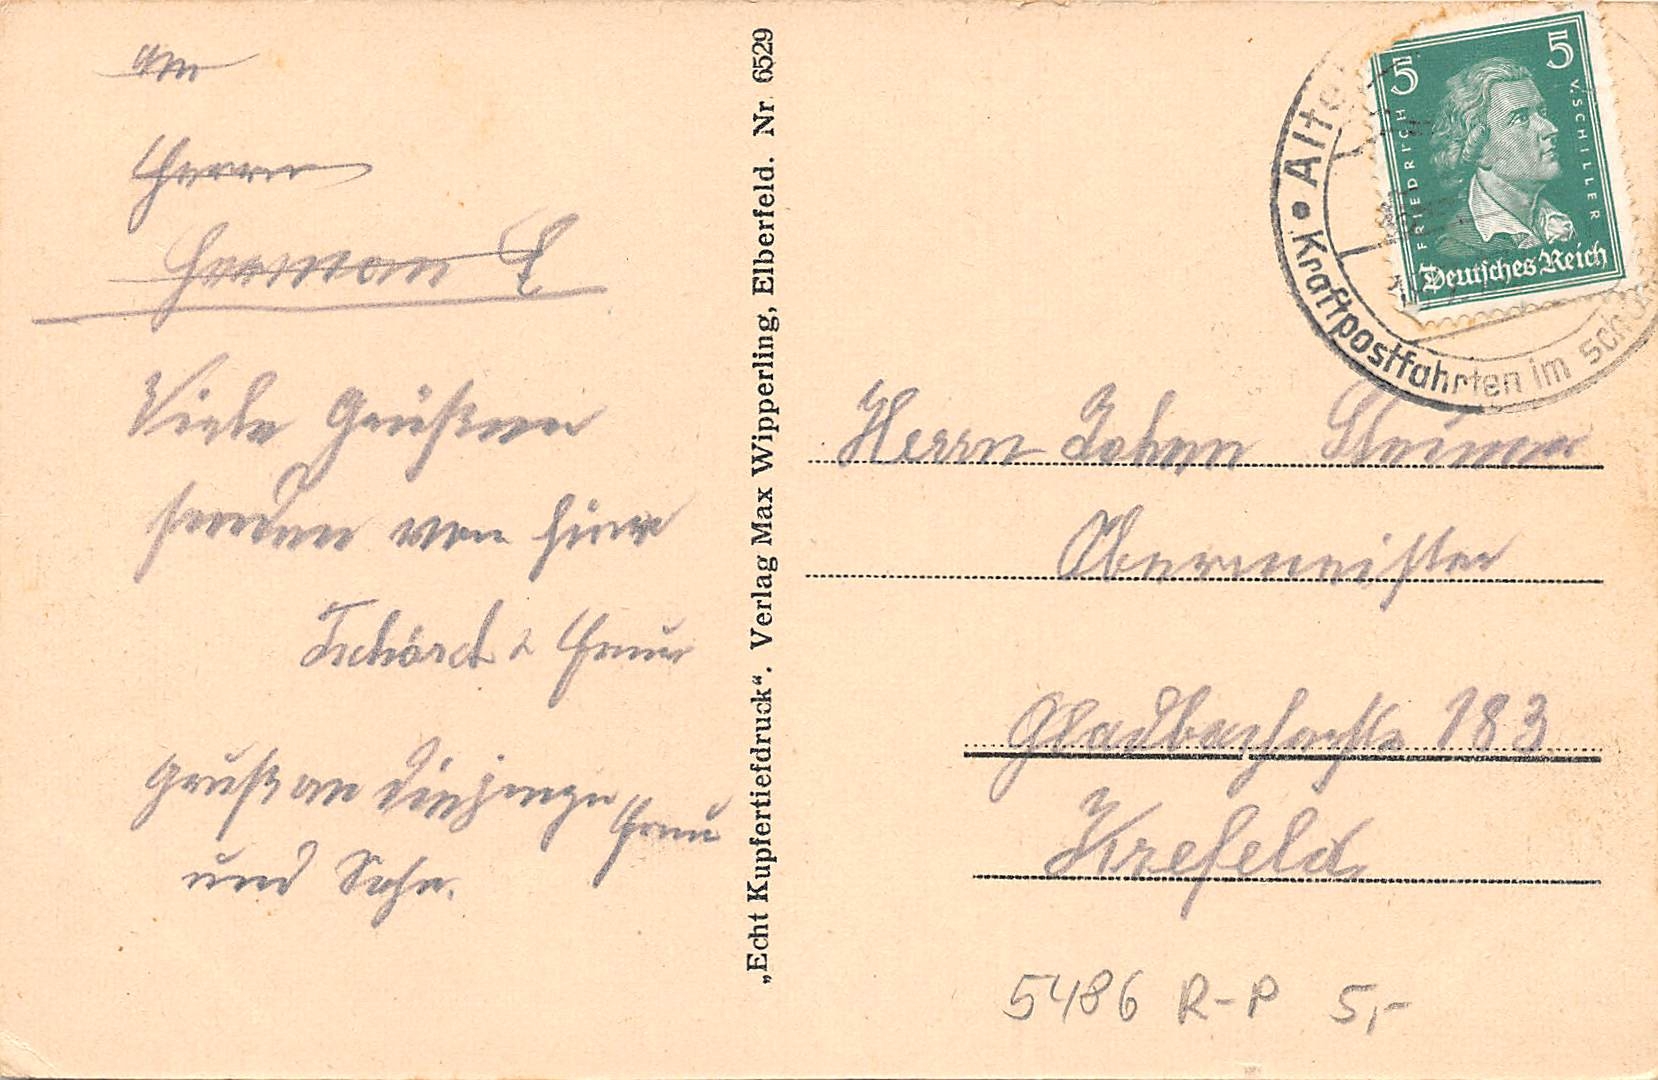 An
Herrn
Herman E
Viele Grüße
senden von hier
Tschörch & Frau
Gruß an die junge Frau
und Sohn.
„Echt Kupfertiefdruck“. Verlag Max Wipperling, Elberfeld. Nr 6529
5 5
FRIEDRICH V. SCHILLER
Deutsches Reich
Alte
Kraftpostfahrten im schön
Herrn Johann
Obermeister
Gladbacherstr 183
Krefeld
5486 R-P 5,-